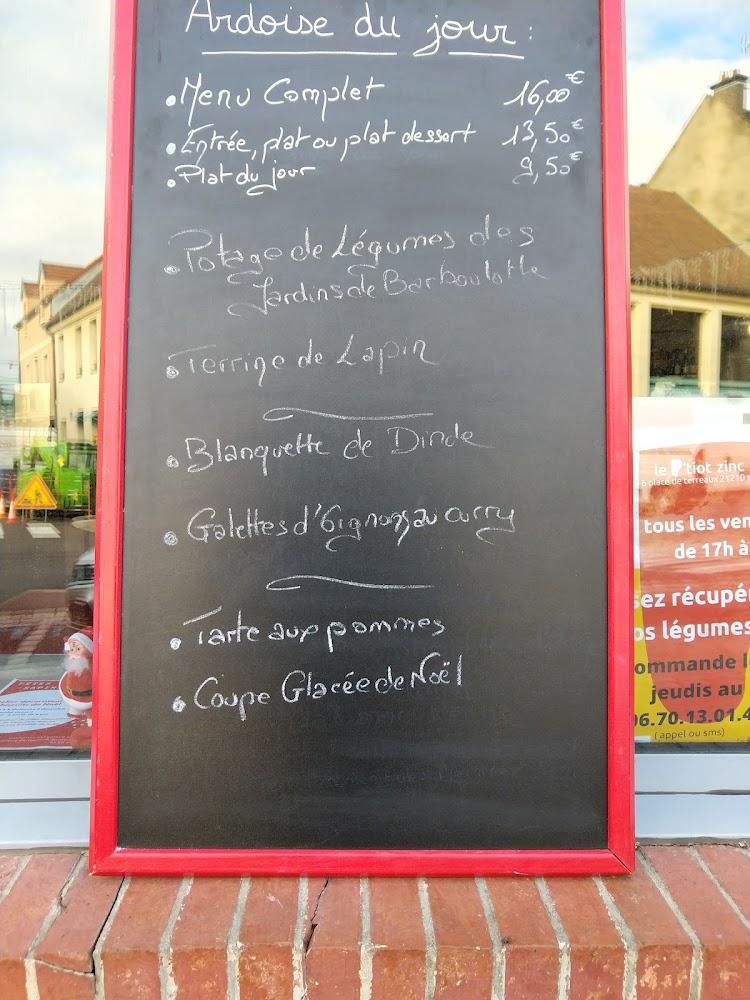 Ardoise du jour :
• Menu Complet 16,00€
• Entrée, plat ou plat dessert 13,50€
• Plat du jour 9,50€
• Potage de Légumes des
Jardins de Barboulotte
• Terrine de Lapin
• Blanquette de Dinde
• Galettes d'Oignons au curry
• Tarte aux pommes
• Coupe Glacée de Noël
le P'tiot zinc
6 place de terreaux 21210
tous les ven
de 17h à
sez récupé
os légumes
ommande l
jeudis au
06.70.13.01.4
(appel ou sms)